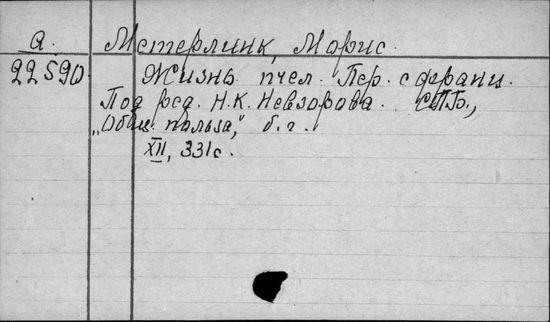 а. Метерлинк, Морис.
22590. Жизнь пчел. Пер. с франц.
Под ред. Н.К. Невзорова. СПБ.,
„Общ. польза," б.г.
XII, 331с.